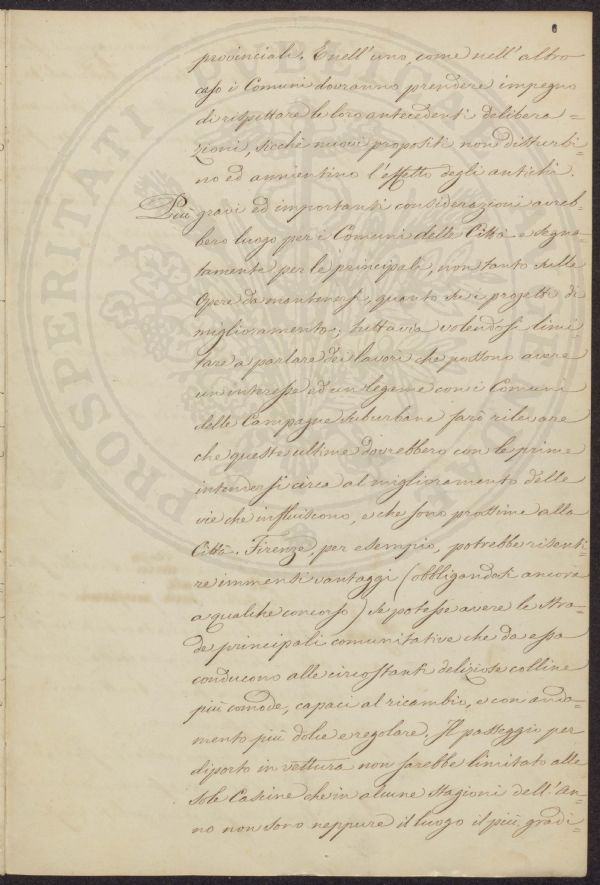 provinciali. E nell'uno, come nell'altro
caso i Comuni dovranno prendere impegno
di rispettare le loro antecedenti delibera=
zioni, sicchè nuovi propositi non disturbi=
no ed annientino l'effetto degli antichi.
Più gravi ed importanti considerazioni avreb=
bero luogo per i Comuni delle Città e segna=
tamente per le principali, non tanto sulle
Opere da mantenersi, quanto su i progetti di
miglioramento; tuttavia volendosi limi=
tare a parlare dei lavori che possono avere
un interesse ed un legame con i Comuni
delle Campagne suburbane farò rilevare
che queste ultime dovrebbero con le prime
intendersi circa al miglioramento delle
vie che influiscono, e che sono prossime alla
Città. Firenze, per esempio, potrebbe risenti=
re immensi vantaggi (obbligandosi ancora
a qualche concorso) se potesse avere le stra=
de principali comunitative che da essa
conducono alle circostanti deliziose colline
più comode, capaci al ricambio, e con anda=
mento più dolce e regolare. Il passeggio per
diporto in vettura non sarebbe limitato alle
sole Cascine che in alcune stagioni dell'An=
no non sono neppure il luogo il più gradi=
PROSPERITATI PUBLICAE